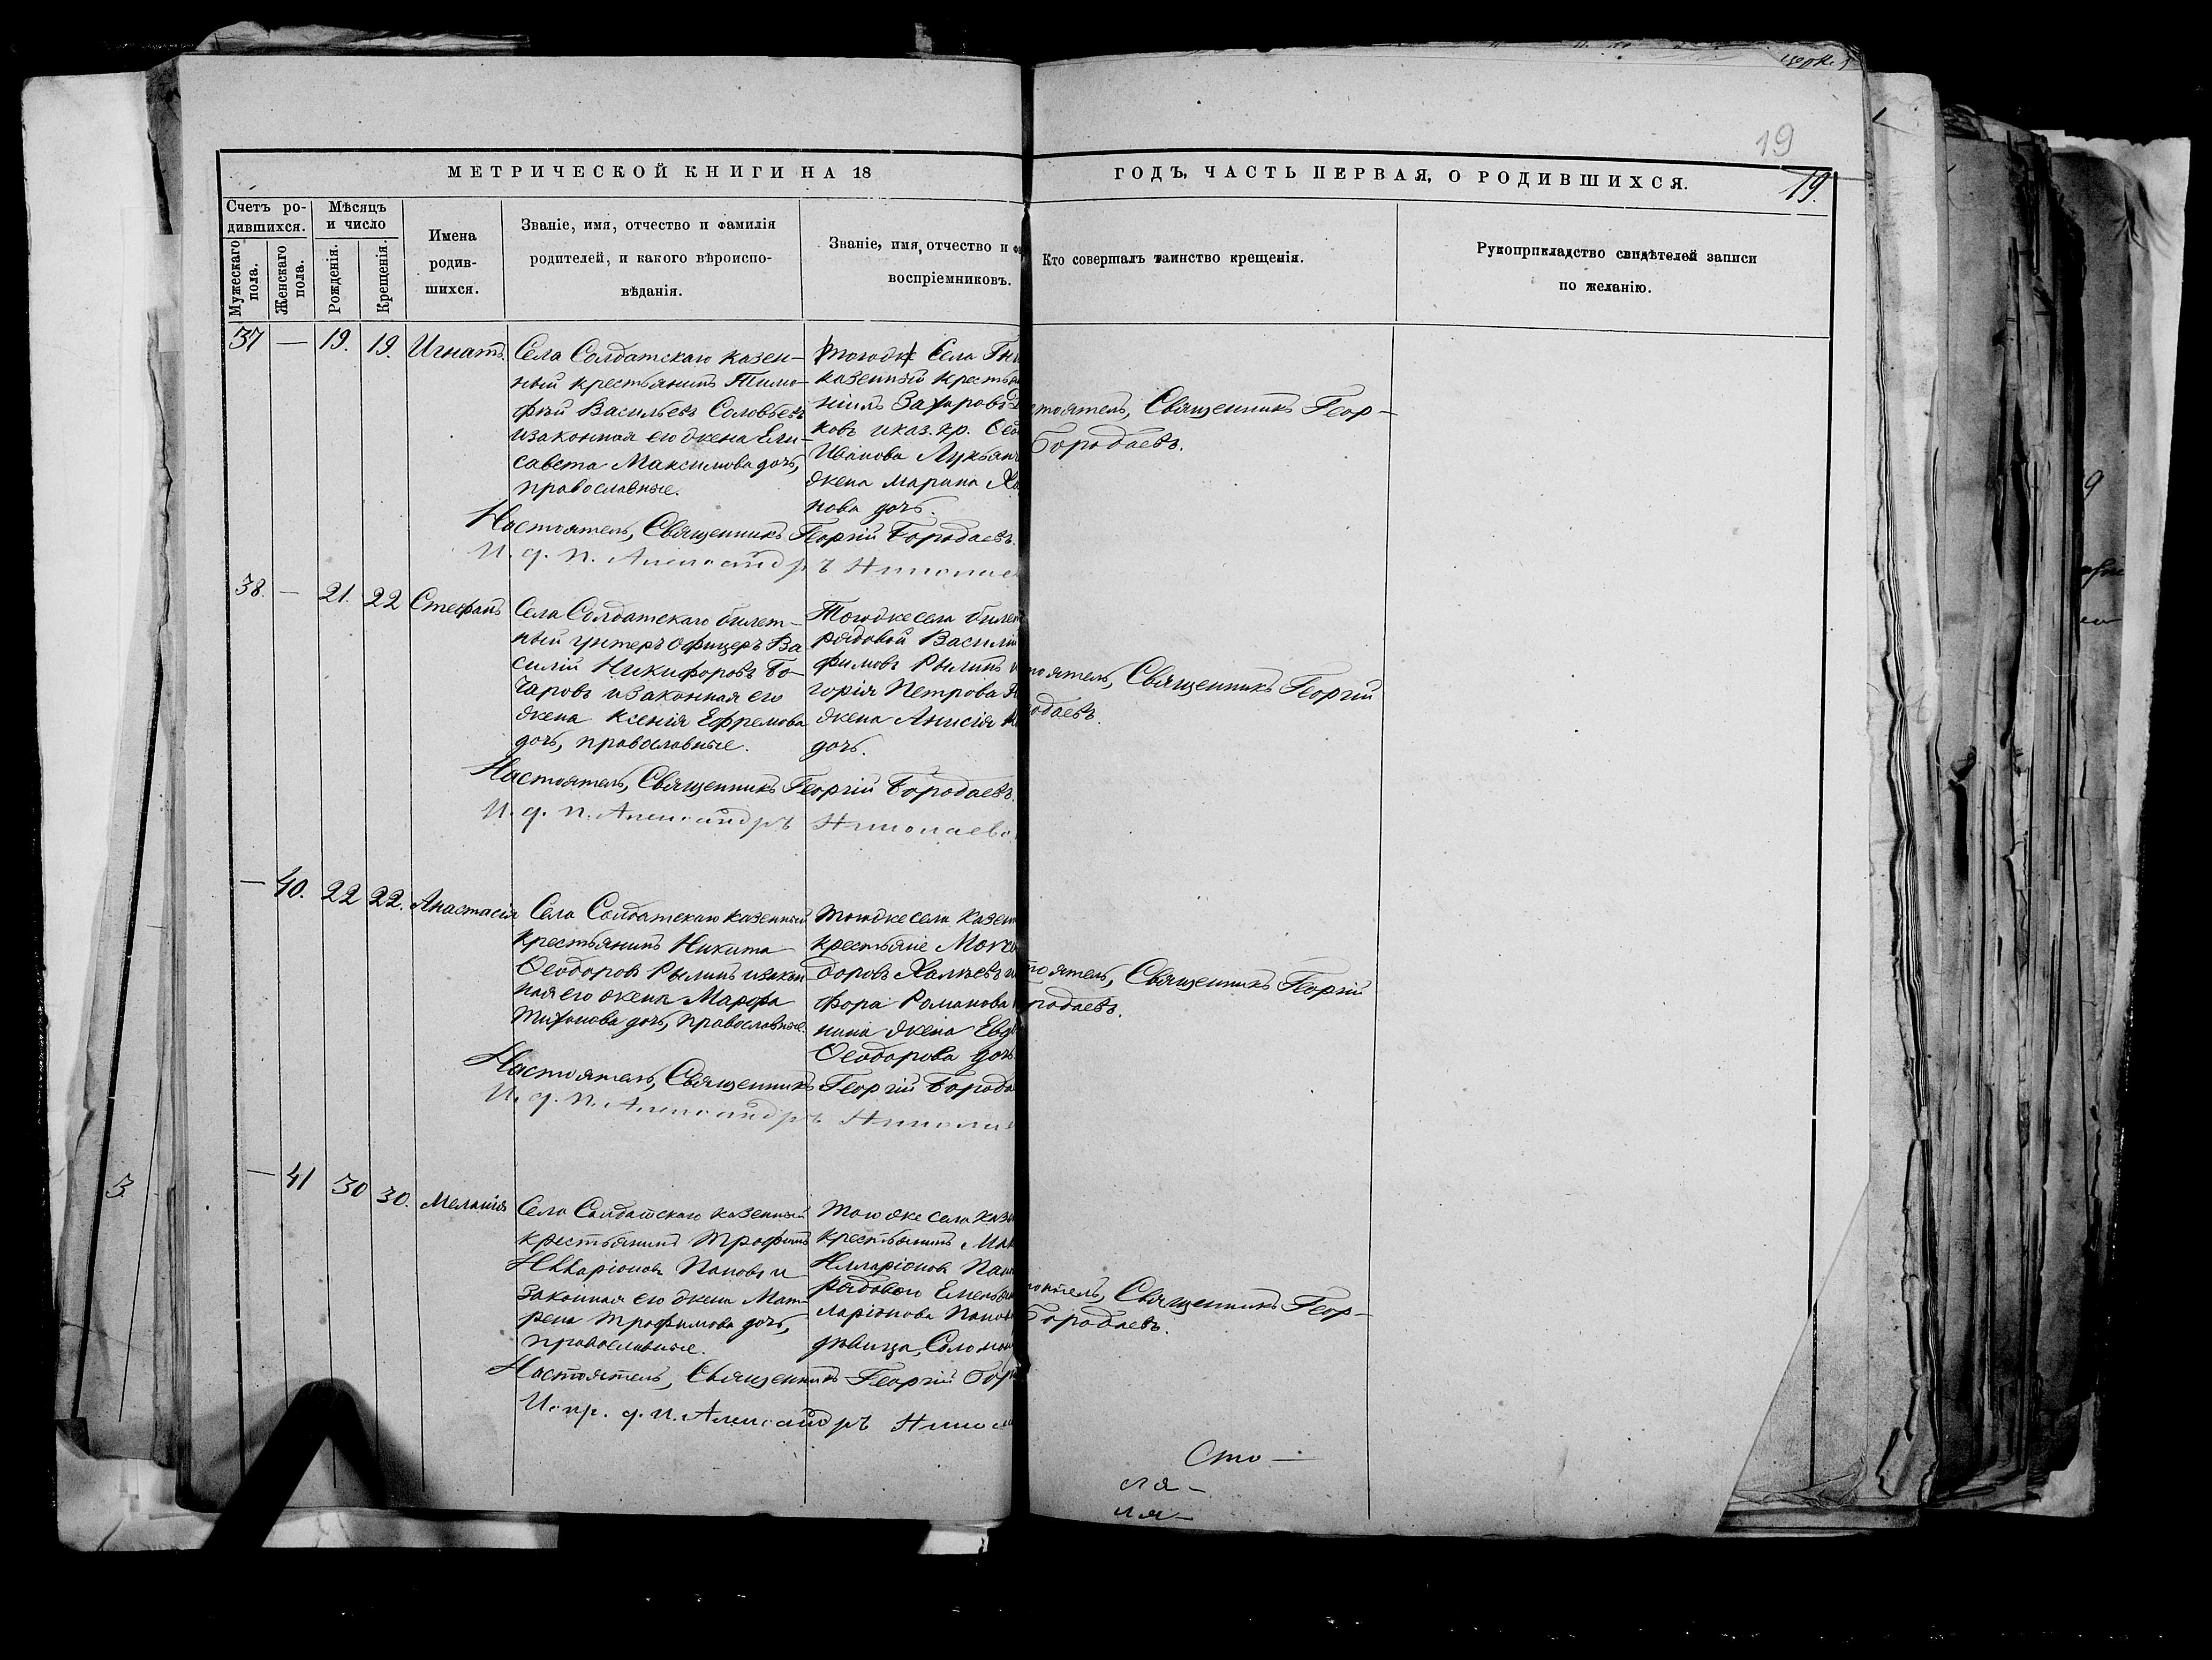 церк.
19
МЕТРИЧЕСКОЙ КНИГИ НА 18
ГОДЪ, ЧАСТЬ ПЕРВАЯ, О РОДИВШИХСЯ.
19.
Счетъ ро-
дившихся.
Мужескаго
пола.
Женскаго
пола.
Мѣсяцъ
и число
Рожденія.
Крещенія.
Имена
родив-
шихся.
Званіе, имя, отчество и фамилія
родителей, и какого вѣроиспо-
вѣданія.
Званіе, имя, отчество и
воспріемниковъ.
Кто совершалъ таинство крещенія.
Рукоприкладство свидѣтелей записи
по желанію.
37 — 19. 19. Игнатъ.
Села Солдатскаго казен-
ный крестьянинъ Тимо-
фѣй Васильевъ Соловьевъ
и законная его жена Ели-
савета Максимова дочь,
православные.
тогоже Села
казенный
Захаровъ
ковъ и каз. кр.
Иванова
жена Марина
нова дочь.
Священникъ Геор-
Бородаевъ.
Настоятель, Священникъ Георгій Бородаевъ.
И. д. п. Александръ
38. — 21. 22 Стефанъ
Села Солдатскаго билет-
ный унтеръ офицеръ Ва
силій Никифоровъ Бо-
чаровъ и законная его
жена Ксенія Ефремова
дочь, православные.
Тогоже села
рядовой
фимовъ Рылинъ
горія Петрова
жена Анисія
дочь.
Священникъ Георгій
Настоятель, Священникъ Георгій Бородаевъ.
И. д. п. Александръ Николаевъ
— 40. 22 22. Анастасія
Села Солдатскаго казенный
крестьянинъ Никита
Ѳеодоровъ Рылинъ и закон
ная его жена Марфа
Тихонова дочь, православные.
Тогоже села
крестьяне
доровъ
фора Романова
нина жена
Ѳеодорова дочь
Священникъ Георгій
Настоятель, Священникъ Георгій
И. д. п. Александръ
— 41 30 30. Меланія
Села Солдатскаго казенный
крестьянинъ Трофимъ
Илларіоновъ Поповъ и
законная его жена Мат-
рена Трофимова дочь,
православные.
Того же села
крестьянинъ
Илларіоновъ
рядового
ларіонова
дѣвица,
Священникъ Геор-
Бородаевъ.
Настоятель, Священникъ Георгій
Испр. д. п. Александръ
Сто —
ля —
ля —
3.